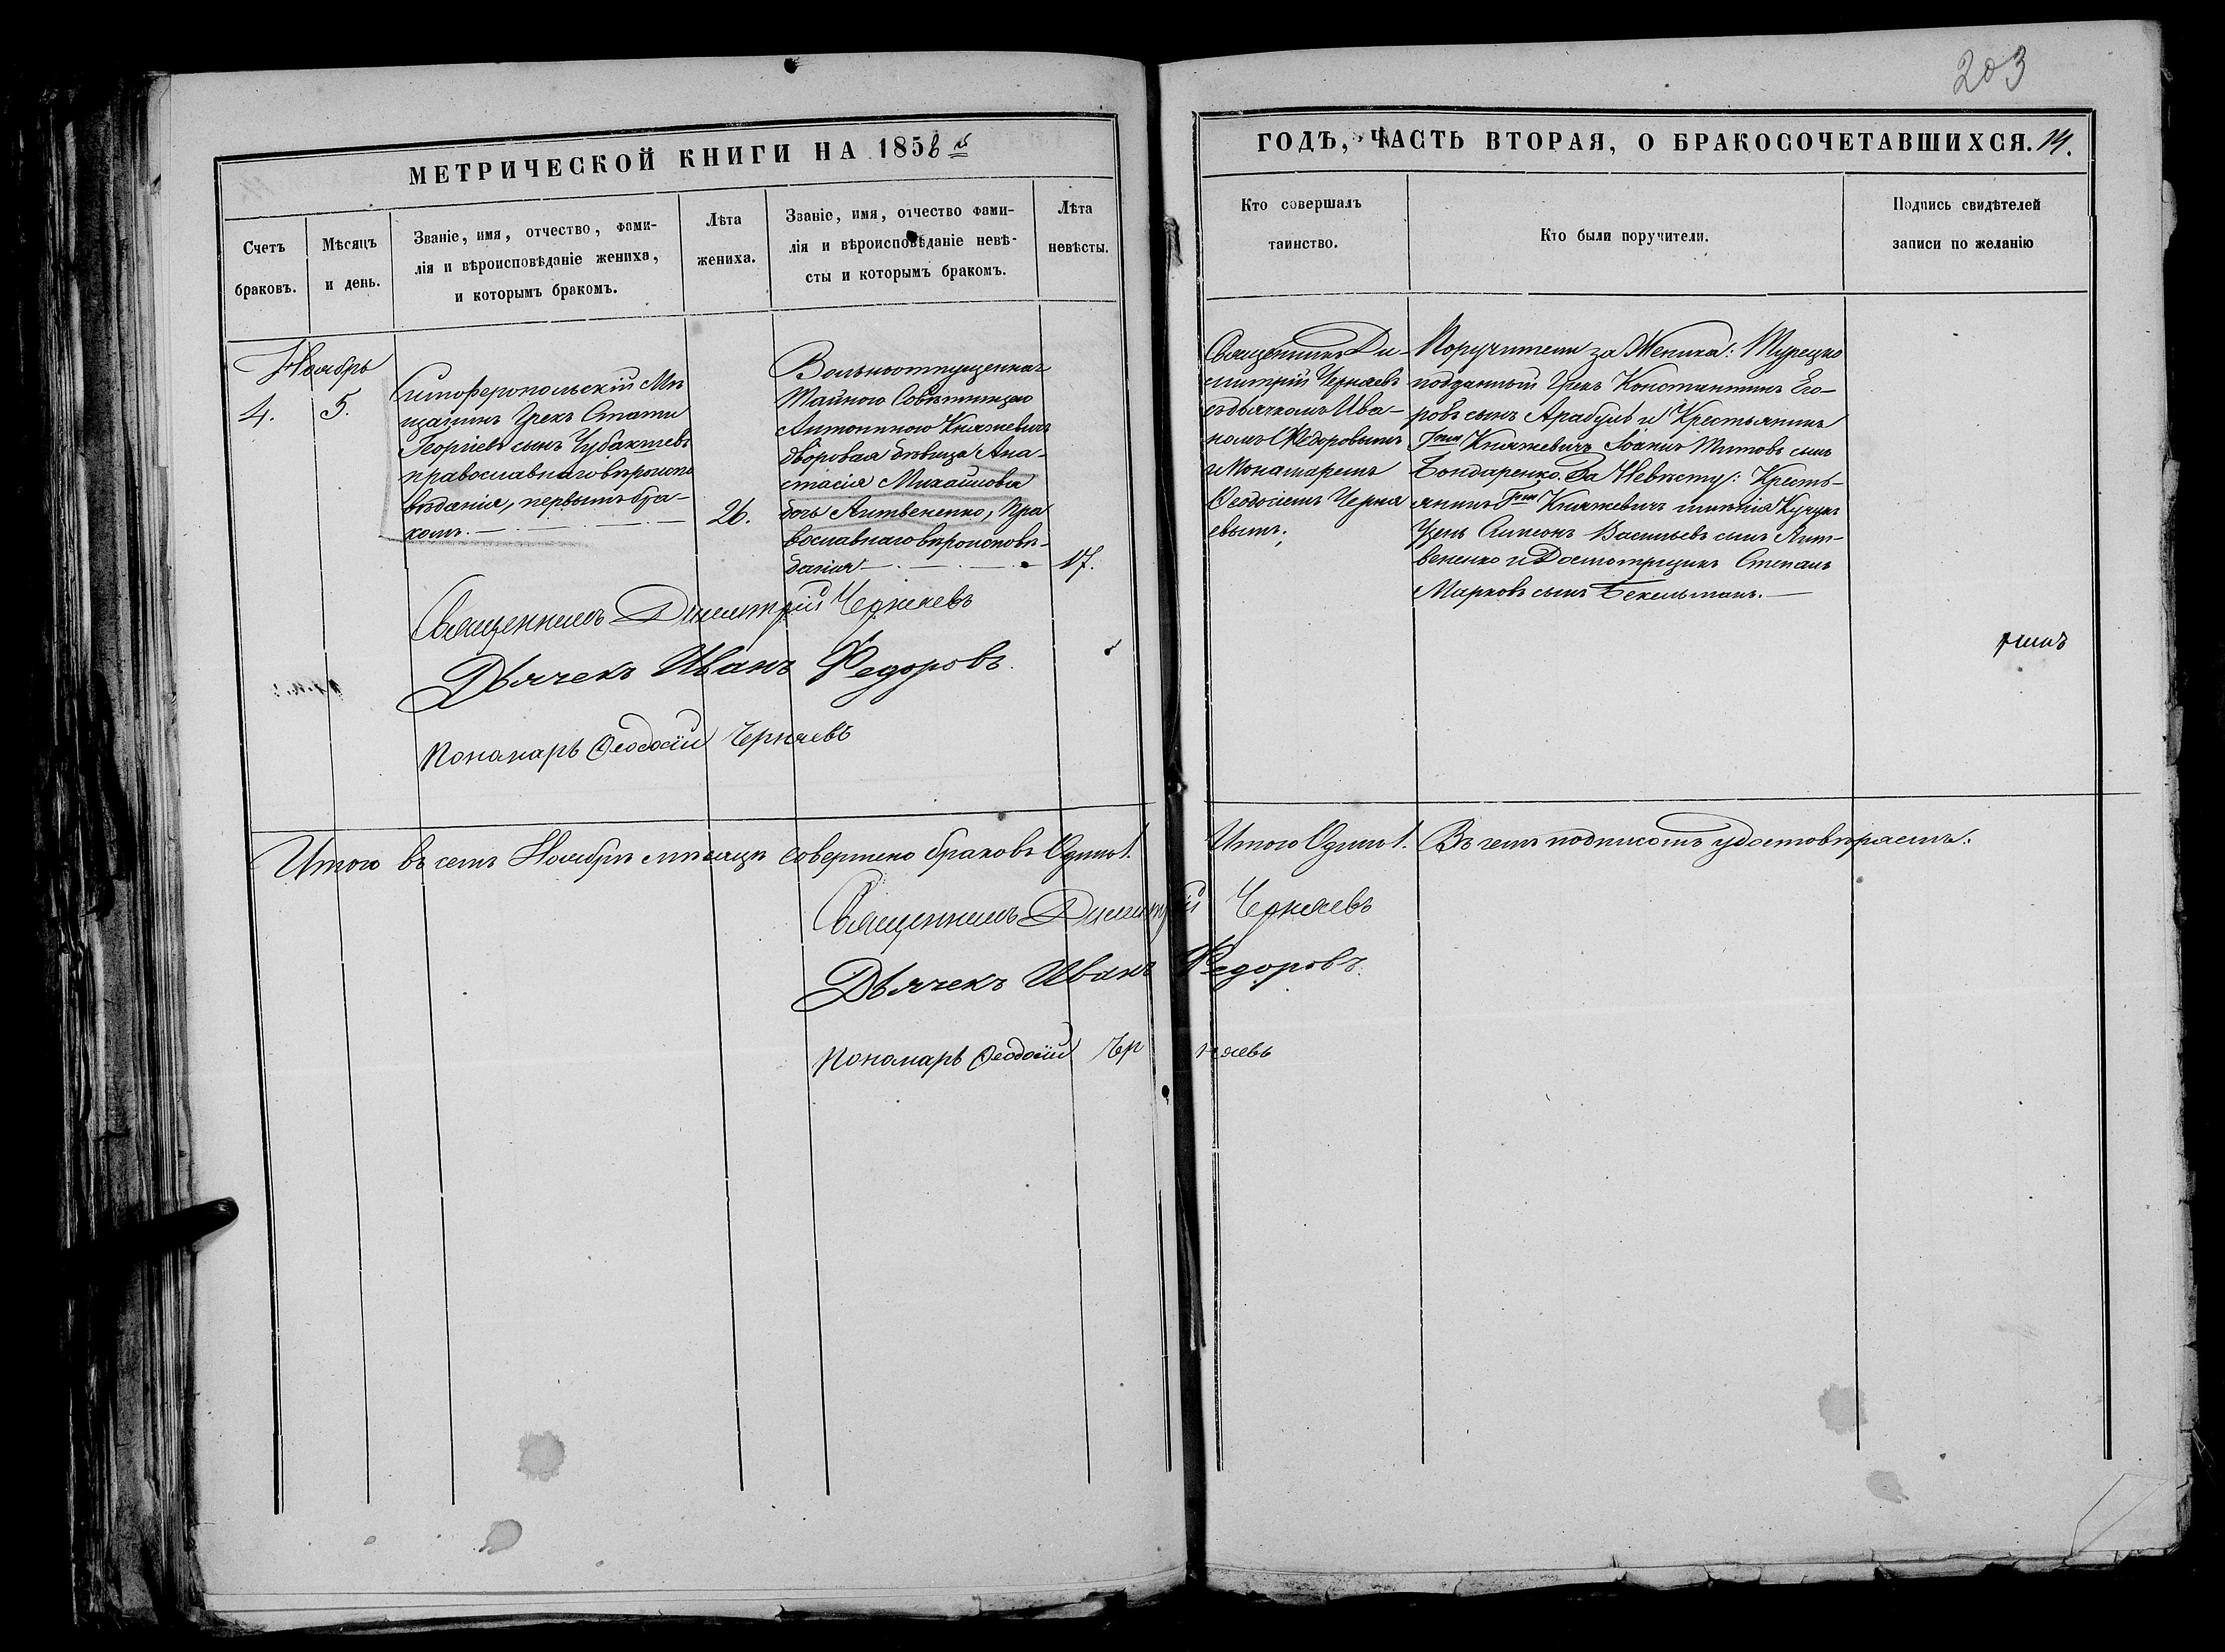 203
МЕТРИЧЕСКОЙ КНИГИ НА 1856й
ГОДЪ, ЧАСТЬ ВТОРАЯ, О БРАКОСОЧЕТАВШИХСЯ. 14.
Счетъ
браковъ.
Мѣсяцъ
и день.
Званіе, имя, отчество, фами-
лія и вѣроисповѣданіе жениха,
и которымъ бракомъ.
Лѣта
жениха.
Званіе, имя, отчество фами-
лія и вѣроисповѣданіе невѣ-
сты и которымъ бракомъ.
Лѣта
невѣсты.
Кто совершалъ
таинство.
Кто были поручители.
Подпись свидѣтелей
записи по желанію
Ноябрь
4.
5.
Симферопольскій Мѣ
щанинъ Грекъ Стати
Георгіевъ сынъ Чубакчевъ
православнаго вѣроиспо
вѣданія, первымъ бра-
комъ.
26.
Вольноотпущенная
Тайнаго Совѣтника
Антониною Княжевичъ
дворовая дѣвица Ана-
стасія Михаилова
дочь Литвененко, Пра
вославнаго вѣроисповѣ-
данія
17.
Священникъ Ди-
митрій Черняевъ
съ дьячкомъ Ива-
номъ Ѳедоровымъ
и Понамаремъ
Ѳеодосіемъ Черня
евымъ.
Поручители за Жениха: Турецко
подданный Грекъ Константинъ Его-
ровъ сынъ Арабулѣ и Крестьянинъ
Гжи Княжевичъ Іоаннъ Титовъ сынъ
Бондаренко. За Невѣсту: Кресть-
янинъ Гжи Княжевичъ имѣнія Кучукъ
Узень Симеонъ Васильевъ сынъ Лит-
вененко и Досмотрщикъ Степанъ
Марковъ сынъ Бекельманъ.
Священникъ Димитрій Черняевъ
Дьячекъ Иванъ Федоровъ.
Пономарь Ѳеодосій Черняевъ
Итого въ семъ Ноябрѣ мѣсяцѣ совершено браковъ Одинъ 1.
Итого Одинъ 1. Въ чемъ подписомъ удостовѣряемъ:
Священникъ Димитрій Черняевъ
Дьячекъ Иванъ Федоровъ.
Пономарь Ѳеодосій Черняевъ